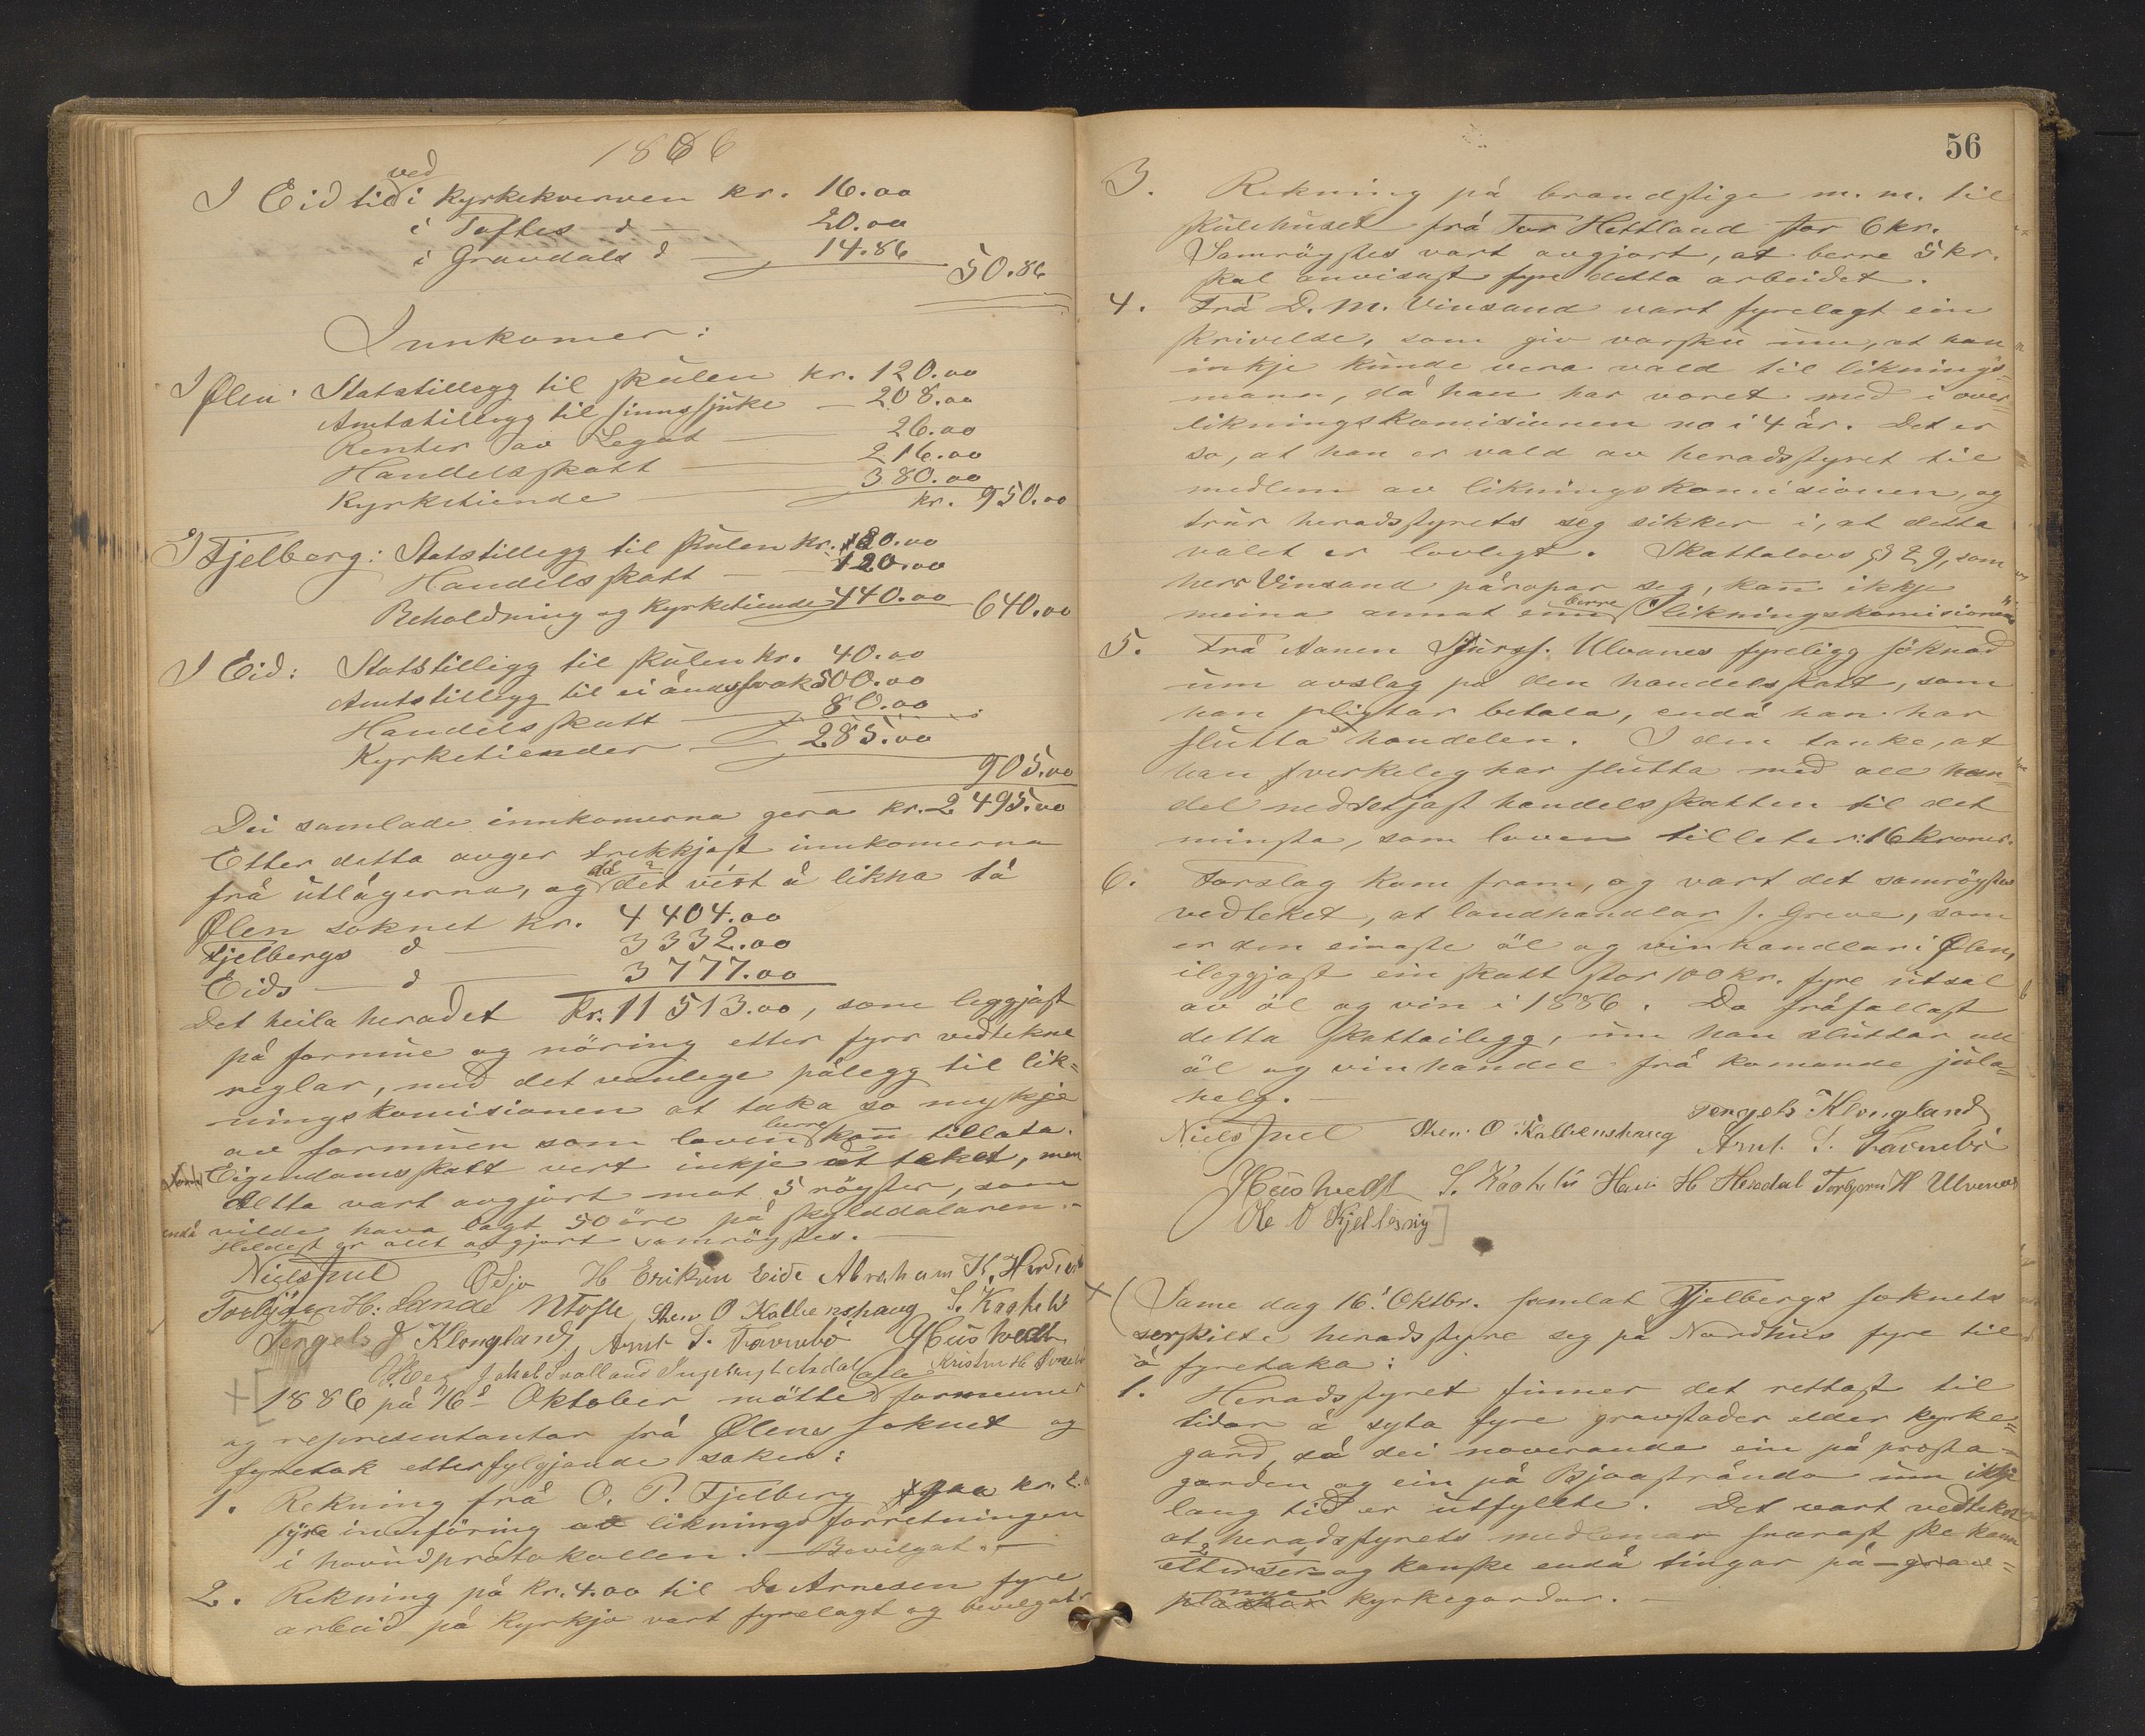 1886
I Eid til ved i Kyrkekverven kr. 16.00
i Toftes d — 20.00
i Gravdals d — 14.86
50.86
Innkomer:
I Ølen: Statstillegg til skulen kr. 120.00
Amtstillegg til sinnssjuke — 208.00
Renter av Legat — 26.00
Handelsskatt — 216.00
Kyrketiende — 380.00
kr. 950.00
I Fjelberg: Statstillegg til skulen kr. 80.00
Handelsskatt — 120.00
Beholdning og Kyrketiende 440.00 640.00
I Eid: Statstillegg til skulen kr. 40.00
Amtstillegg til ei åndssvak 500.00
Handelsskatt — 80.00
Kyrketiender — 285.00
905.00
Dei samlade innkomerna gera kr. 2 495.00
Etter detta avger trekkjast innkomerna
frå utlågerna, og då det vert å likna få
Ølen soknet kr. 4 404.00
Fjelbergs d — 3 332.00
Eids — d — 3 777.00
Det heila heradet kr. 11 513.00, som leggjast
på formue og nöring etter fyrr vedtekne
reglar, med det vanlege pålegg til lik=
ningskomisionen at taka so mykje
av formuen som loven berre kan tillata.
Eigendomsskatt vert inkje uttaket, men
detta vart avgjort mot 5 röyster, som
endå vilde hava lagt 50 öre på skylddalaren.-
Heldest er allt avgjort samröystes.
Niels Juel O Sjo H Eriksen Eide Abraham K.
Torbjörn H. Lande N Tofte Sten O Kalvenshaug
Tengels J Klongland Arnt S. Tavnebö J Hustvedt
1886 på 16d Oktober mötte formenner
og representantar frå Ølens soknet og
fyretok etterfylgjande saker:
1. Rekning frå O. P. Fjelberg paa kr. 2.
fyre innföring av likningsforretningen
i hovudprotokollen. — Bevilgat. —
2. Rekning på kr. 4.00 til Arnesen fyre
arbeid på kyrkja vart fyrelagt og bevilgat.
56
3. Rekning på brandstige m. m. til
skulehuset frå Tor Hettland for 6 kr.
Samröystes vart avgjort, at berre 5 kr.
skal anvisast fyre detta arbeidet.
4. Frå D. M. Vinsand vart fyrelagt ein
skrivelse, som giv varsku um, at han
inkje kunde vera vald til liknings=
mann, då han har voret med i over=
likningskomisionen no i 4 år. Det er
so, at han er vald av heradsstyret til
medlem av likningskomisionen, og
trur heradsstyrets seg sikker i, at detta
valet er lovlegt. Skattalovs § 29, som
herr Vinsand påropar seg, kann ikkje
meina annat enn berre likningskomisionen
5. Frå Aanen Ulvanes fyreligg söknad
um avslag på den handelsskatt, som
han pligtar betala, endå han har
slutta handelen. I den tanke, at
han verkeleg har slutta med all han=
del nedsetjast handelsskatten til det
minsta, som loven tilleter: 16 kroner.
6. Forslag kom fram, og vart det samröystes
vedteket, at landhandlar J. Greve, som
er den einaste öl og vinhandlar i Ølen,
ileggjast ein skatt stor 100 kr. fyre utsal
av öl og vin i 1886. Da fråfallast
detta skattailegg, um han sluttar
öl og vinhandel frå komande jola=
helg. —
Tengels Klongland
Niels Juel Sten O Kalvenshaug Arnt S. Tavnebö
J Hustvedt Torbjörn H Ulvenes
Ole O Kjellesvig
Same dag 16d Oktbr. samlat Fjelbergs soknets
serskilte heradsstyre seg på Nordhus fyre til
å fyretaka:
1. Heradsstyret finner det rettast til
tidar å syta fyre gravstader elder kyrke=
gard, då dei noverande ein på presta=
garden og ein på Bjoastranda um ikkje
lang tid er utfyllte. Det vart vedteket
at heradsstyrets medlemar snarast ske kann
ettersér og kanske endå tingar på grav=
plassar nye kyrkegardar. —